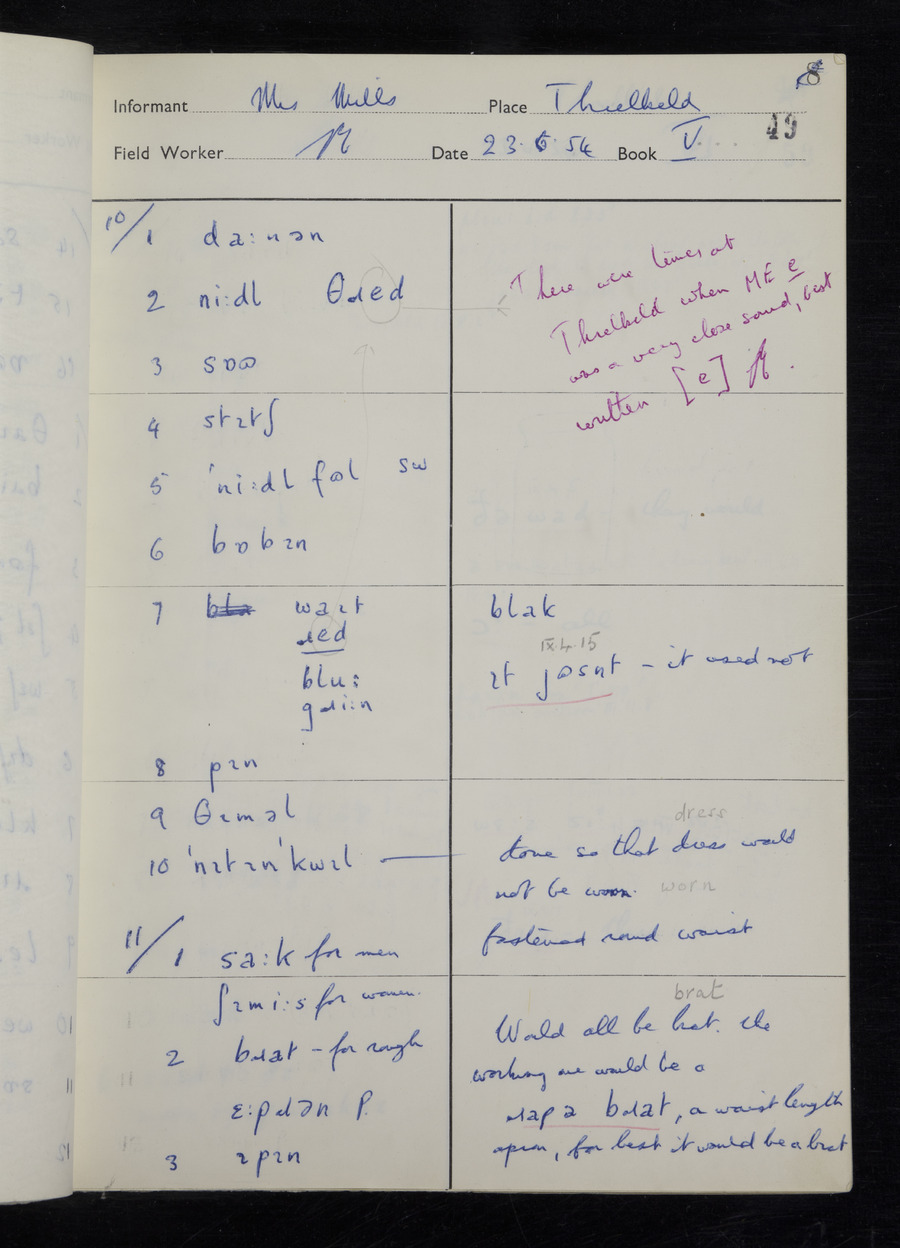 8
Informant Mrs Mills Place Threlkeld
49
Field Worker Date 23. 6. 54 Book V.
10/1 da:nən
2 ni:dl θɹed
3 sɒꭥ
4 stɪtʃ
5 ˈni:dl fꭥl sw
6 bɒbɪn
7 waɪt
ɹed
blu:
gɹi:n
8 pɪn
9 θɪməl
10 ˈnɪtɪnˈkwɪl
11/1 sa:k for men
ʃɪmi:s for women.
2 bɹat – for rough
ɛ:pɹən P.
3 ɪpɪn
There were times at
Threlkeld when ME e
was a very close sound, best
written [e]
blak
IX.4.15
ɪt jꭥsnt – it used not
dress
done so that dress would
not be worn. worn
fastened round waist
brat
Would all be brat. The
working one would be a
ɹapə bɹat, a waist length
apron, for best it would be a brat